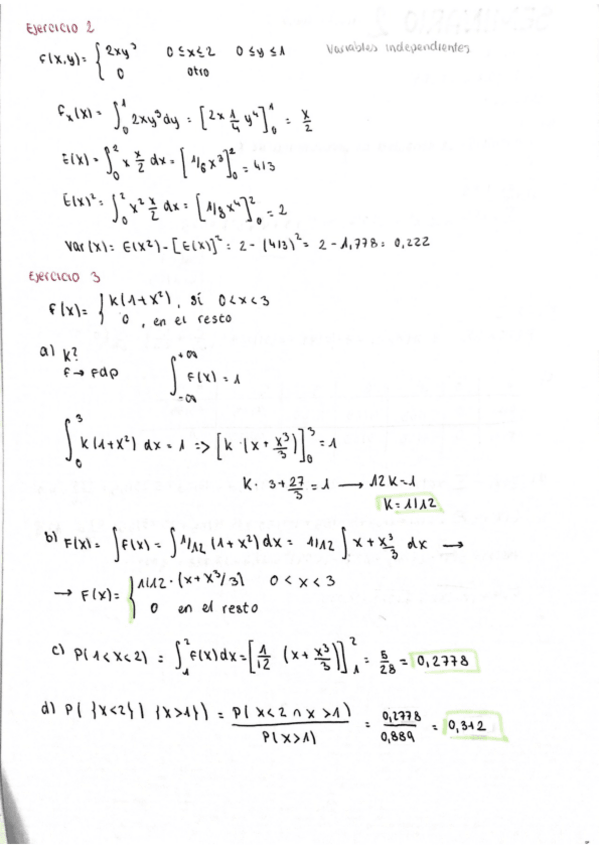 Ejercicio 2
f(x,y)= { 2xy³ 0≤x≤2 0≤y≤1 Variables independientes
0 otro
Fx(x)= ∫₀¹ 2xy³dy = [2x 1/4 y⁴]₀¹ = x/2
E(x)= ∫₀² x x/2 dx = [1/6 x³]₀² = 4/3
E(x)²= ∫₀² x² x/2 dx = [1/8 x⁴]₀² = 2
Var(x)= E(x²)-[E(x)]² = 2-(4/3)² = 2-1,778 = 0,222
Ejercicio 3
F(x)= { K(1+x²), si 0<x<3
0, en el resto
a) K?
F→ Fdp ∫₋∞⁺∞ F(x) = 1
∫₀³ K(1+x²) dx = 1 => [K·(x+x³/3)]₀³ = 1
K· 3+27/3 = 1 → 12K=1
K=1/12
b) F(x)= ∫F(x)= ∫1/12 (1+x²)dx = 1/12 ∫ x+x³/3 dx →
→ F(x)= { 1/12·(x+x³/3) 0<x<3
0 en el resto
c) P(1<x<2) = ∫₁² F(x)dx = [1/12 (x+x³/3)]₁² = 5/28 = 0,2778
d) P( {x<2} | {x>1}) = P(x<2 ∩ x>1)/P(x>1) = 0,2778/0,889 = 0,312